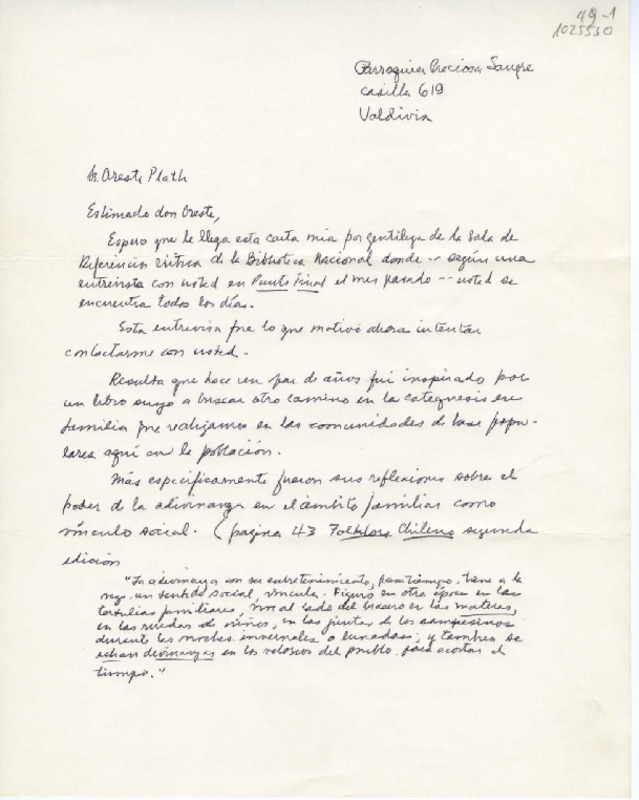 49-1
1025530
Parroquia Preciosa Sangre
Casilla 619
Valdivia
Sr. Oreste Plath
Estimado don Oreste,
Espero que le llega esta carta mia por gentileza de la Sala de
Referencias critica de la Biblioteca Nacional donde -- según una
entrevista con usted en Punto Final el mes pasado -- usted se
encuentra todos los días.
Esta entrevisa fue lo que motivó ahora intentar
contactarme con usted.
Resulta que hace un par de años fui inspirado por
un libro suyo a buscar otro camino en la catequesis en
familia que realizamos en las comunidades de base popu-
lares aquí en la población.
Más especificamente fueron sus reflexiones sobre el
poder de la adivinanza en el ámbito familiar como
vínculo social. (pagina 43 Folklore Chileno segunda
edición
"La adivinanza con su entretenimiento, pasatiempo, tiene a la
vez, un sentido social, vincula. Figuró en otra época en las
tertulias familiares, al lado del brasero en las materas,
en las ruedas de niños, en las juntas de los campesinos
durante las noches invernales o lunadas; y tambien se
echan divinanzas en los velorios del pueblo, para acortar el
tiempo."